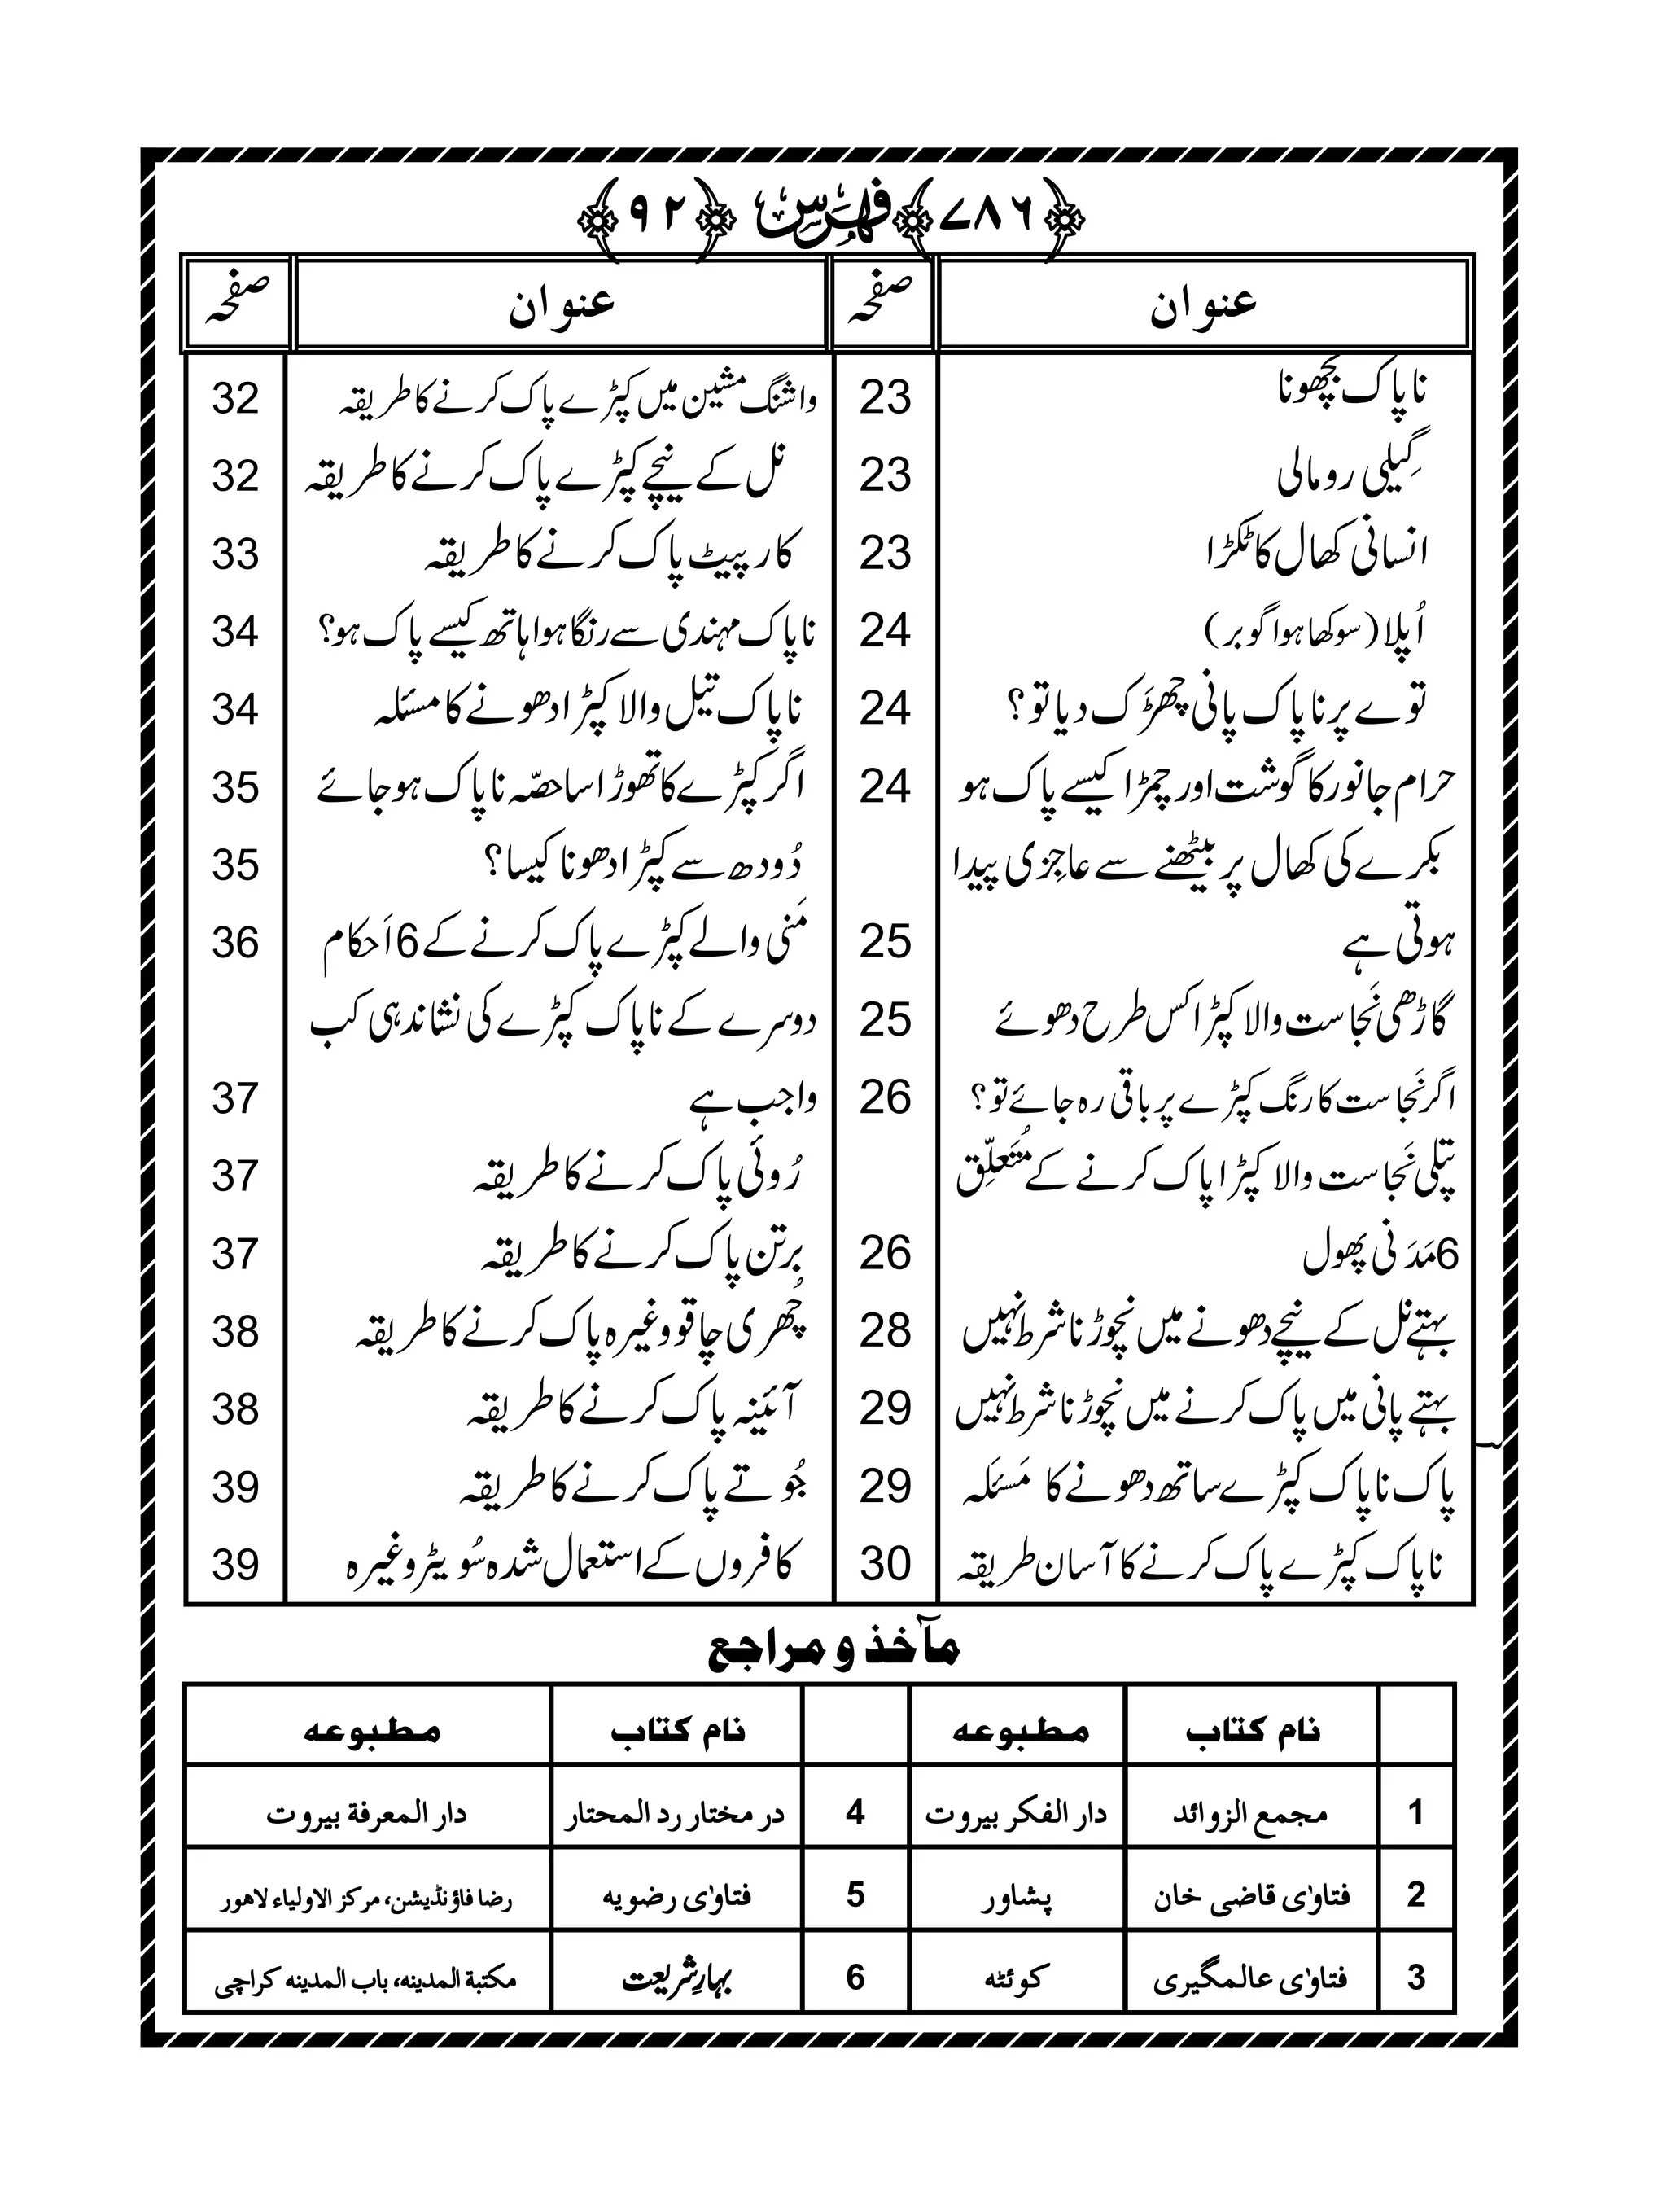 ﴿۷۸۶﴾ فہرس ﴿۹۲﴾
عنوان صفحہ عنوان صفحہ
ناپاک بچھونا 23 واشنگ مشین میں کپڑے پاک کرنے کا طریقہ 32
گِیلی رومالی 23 نل کے نیچے کپڑے پاک کرنے کا طریقہ 32
انسانی کھال کا ٹکڑا 23 کارپیٹ پاک کرنے کا طریقہ 33
اُپلا (سوکھا ہوا گوبر) 24 ناپاک مہندی سے رنگا ہوا ہاتھ کیسے پاک ہو؟ 34
توے پر ناپاک پانی چھڑَک دیا تو؟ 24 ناپاک تیل والا کپڑا دھونے کا مسئلہ 34
حرام جانور کا گوشت اور چمڑا کیسے پاک ہو 24 اگر کپڑے کا تھوڑا سا حصّہ ناپاک ہو جائے 35
بکرے کی کھال پر بیٹھنے سے عاجِزی پیدا دُودھ سے کپڑا دھونا کیسا؟ 35
ہوتی ہے 25 مَنی والے کپڑے پاک کرنے کے 6 اَحکام 36
گاڑھی نَجاست والا کپڑا کس طرح دھوئے 25 دوسرے کے ناپاک کپڑے کی نشاندہی کب
اگر نَجاست کا رنگ کپڑے پر باقی رہ جائے تو؟ 26 واجب ہے 37
پتلی نَجاست والا کپڑا پاک کرنے کے مُتَعلِّق رُوئی پاک کرنے کا طریقہ 37
6 مَدَنی پھول 26 برتن پاک کرنے کا طریقہ 37
بہتے نل کے نیچے دھونے میں نچوڑنا شرط نہیں 28 چُھری چاقو وغیرہ پاک کرنے کا طریقہ 38
بہتے پانی میں پاک کرنے میں نچوڑنا شرط نہیں 29 آئینہ پاک کرنے کا طریقہ 38
پاک ناپاک کپڑے ساتھ دھونے کا مَسئَلہ 29 جُوتے پاک کرنے کا طریقہ 39
ناپاک کپڑے پاک کرنے کا آسان طریقہ 30 کافروں کے استعمال شدہ سُویٹر وغیرہ 39
مآخذ و مراجع
نام کتاب مطبوعہ نام کتاب مطبوعہ
1 مجمع الزوائد دار الفکر بیروت 4 در مختار رد المحتار دار المعرفة بیروت
2 فتاوٰی قاضی خان پشاور 5 فتاوٰی رضویہ رضا فاؤنڈیشن، مرکز الاولیاء لاھور
3 فتاوٰی عالمگیری کوئٹہ 6 بہارِ شریعت مکتبة المدینہ، باب المدینہ کراچی